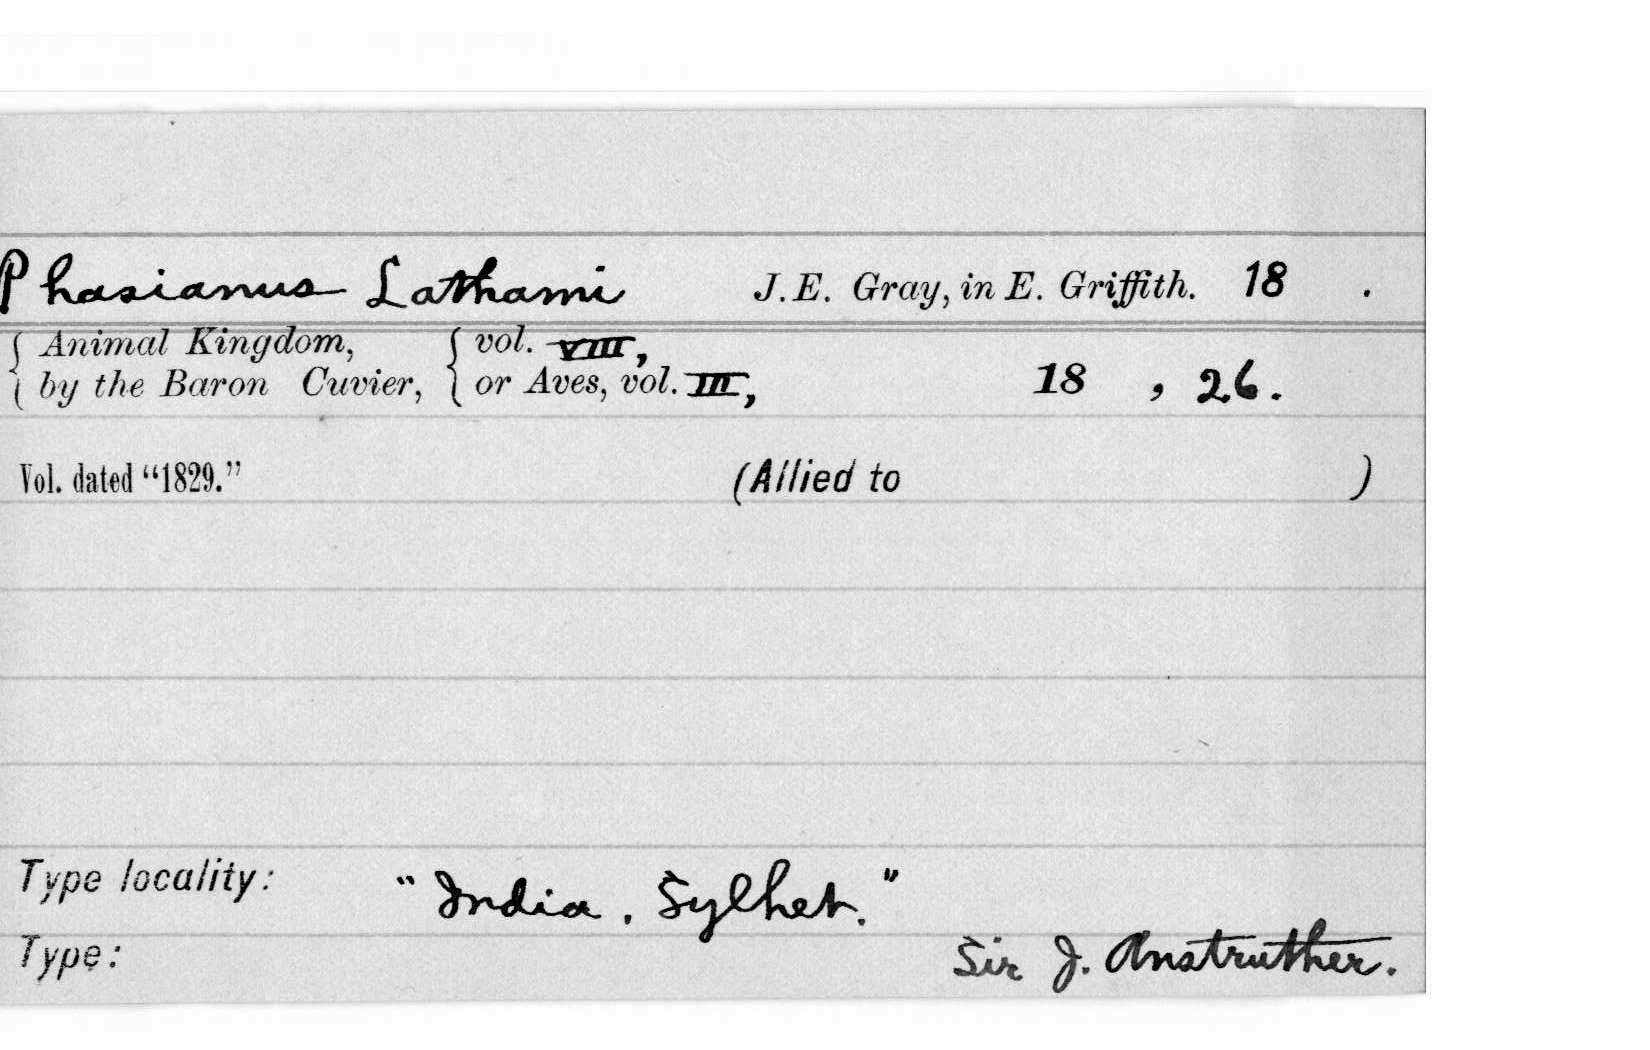 Phasianus Lathami J.E. Gray, in E. Griffith. 18 .
Animal Kingdom, vol. VIII,
by the Baron Cuvier, or Aves, vol. III, 18 , 26.
Vol. dated "1829." (Allied to )
Type locality: "India. Sylhet."
Type: Sir J. Anstruther.